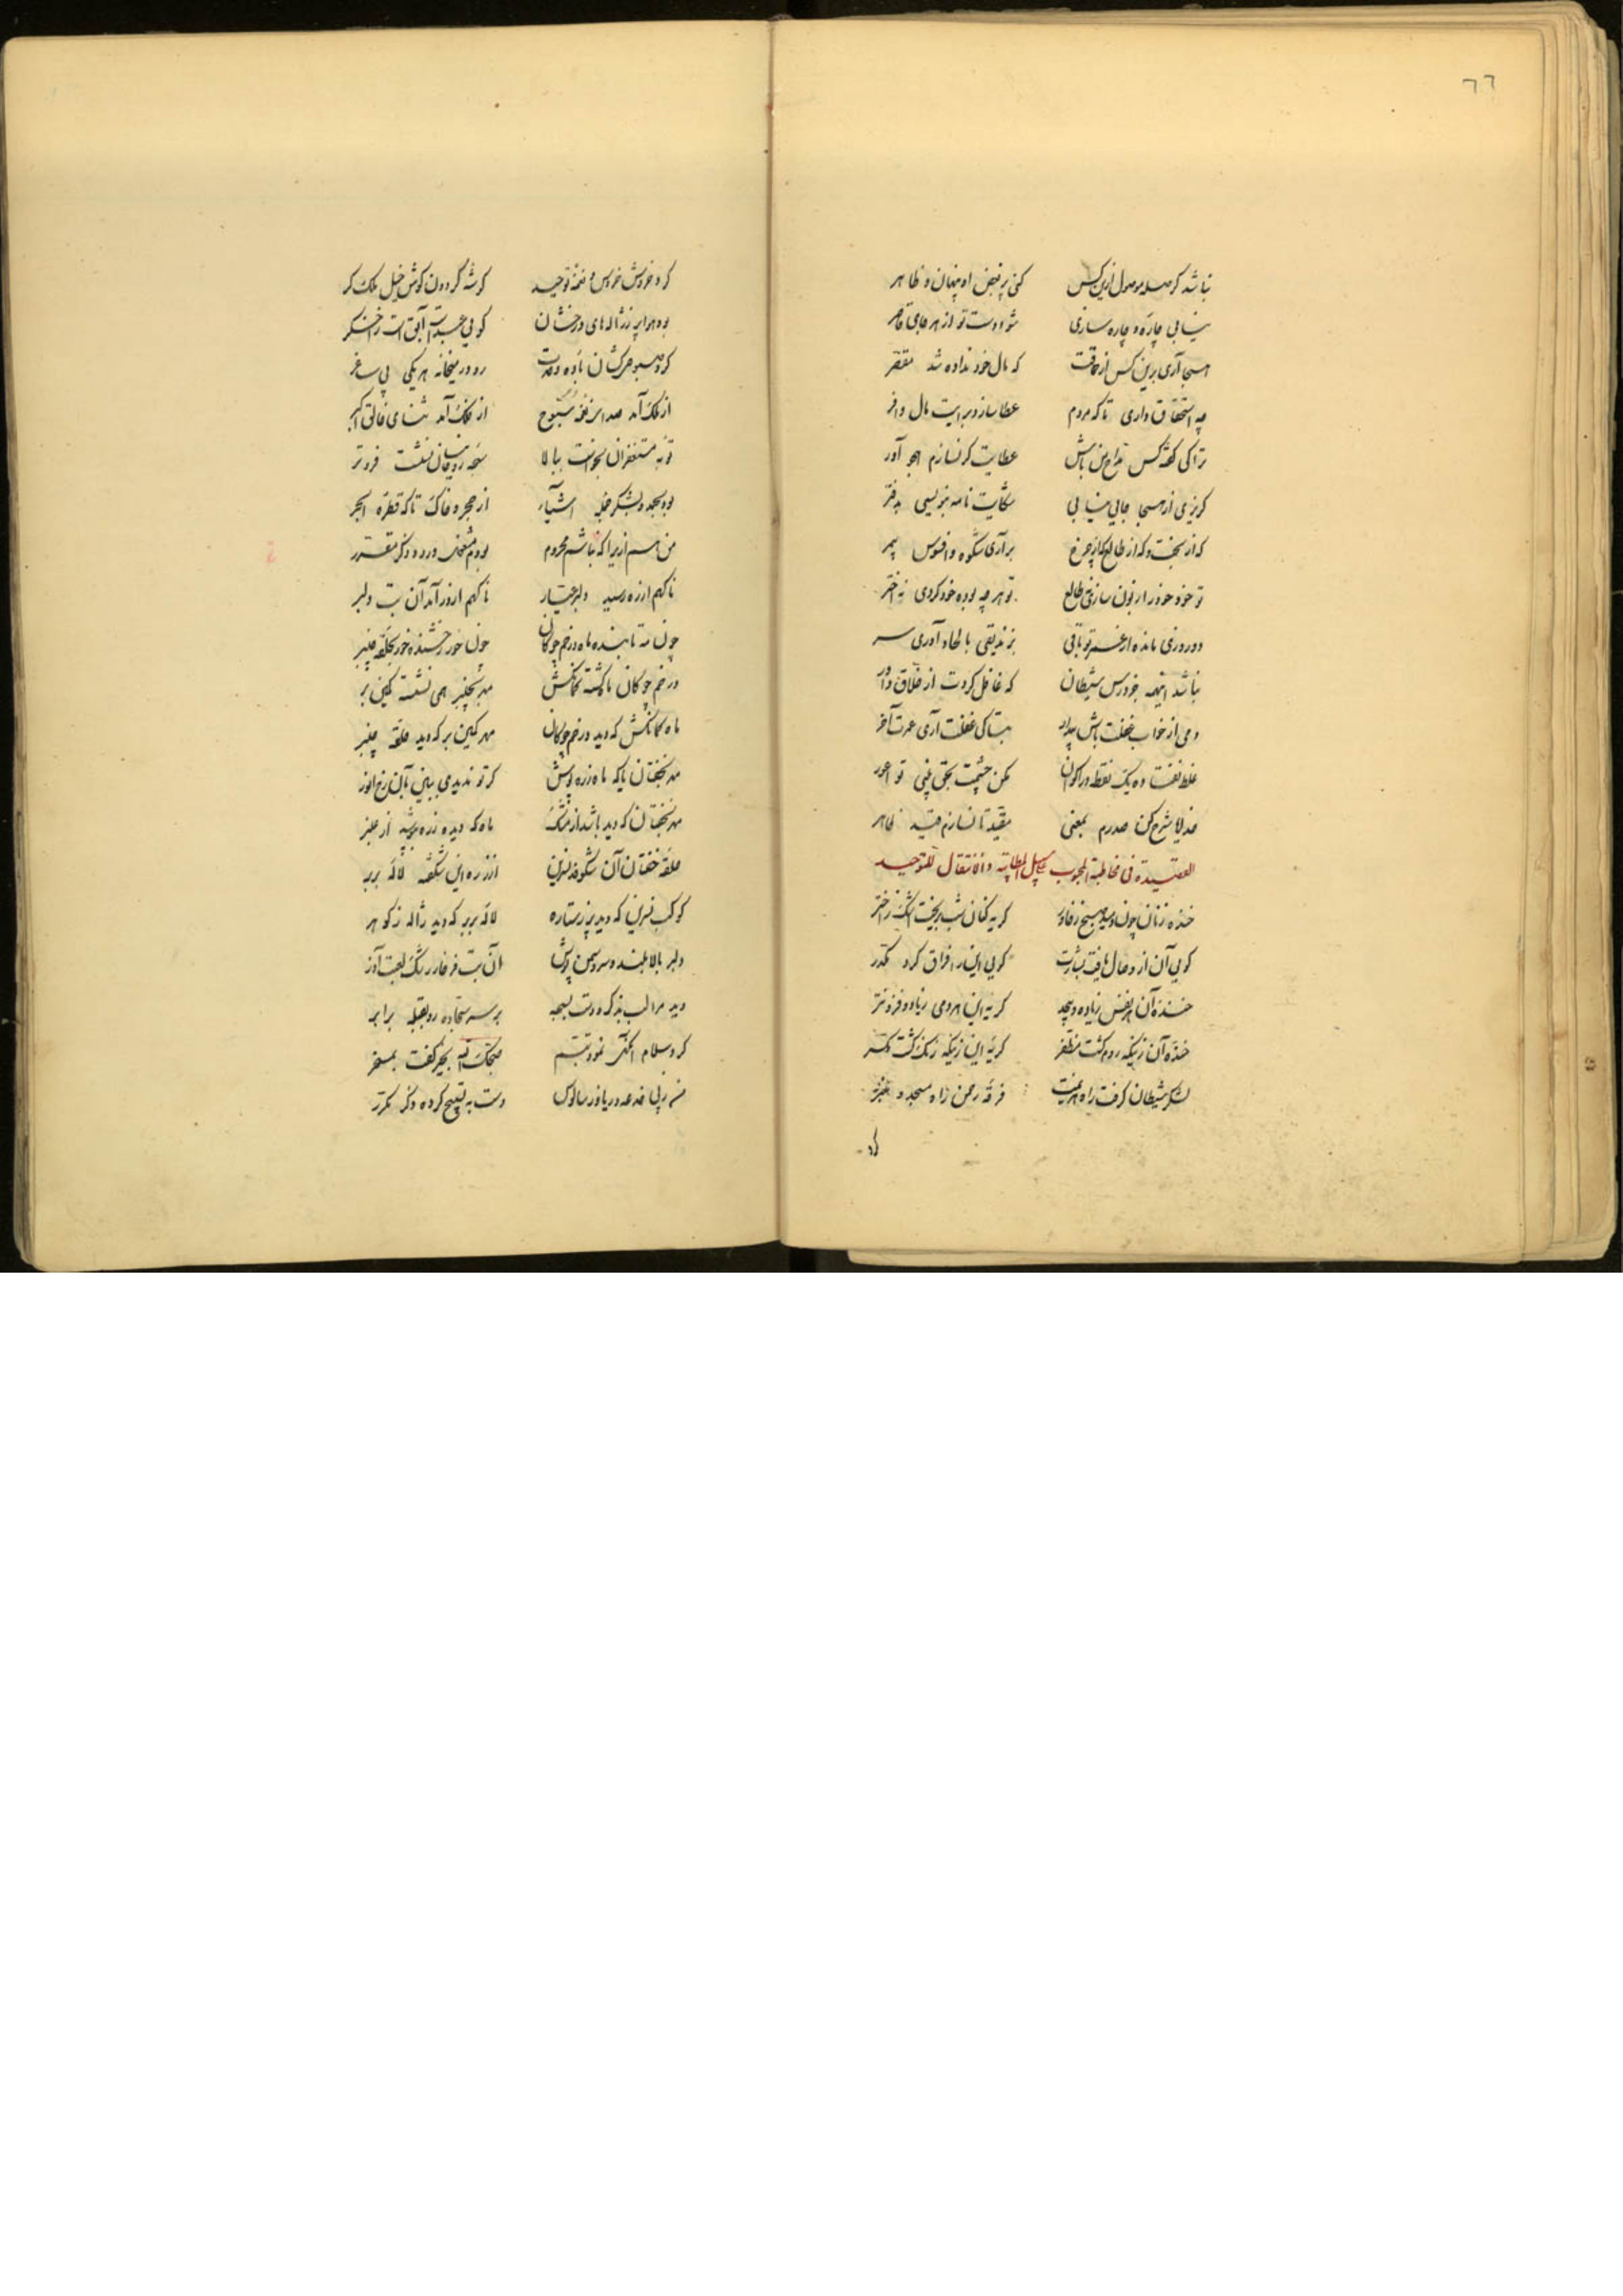 ٦٦
نباشد گر صله موصول ازین کس کنی پر فیض او پنهان و ظاهر
نیابی چاره و چاره سازی شود دست تو از هر جای قاصر
هجا آری برین کس از حماقت که مال خود نداده شد مقصر
چه استحقاق داری تا که مردم عطا سازد برایت مال وافر
ترا کی گفته کس مداح من باش عطایت گر نسازم هجو آور
گریزی از هجا جایی نیابی شکایت نامه بنویسی بدفتر
که از بخت و که از طالع که از چرخ برآری شکوه و افسوس بیمر
تو خود خود را زبون سازی نه طالع تو هر چه بوده خود کردی نه اختر
دو روزی مانده از عمر تو باقی بزندیقی بالحاد آوری سر
نباشد اینهمه جز درس شیطان که غافل کردت از خلاق داور
دمی از خواب غفلت باش بیدار بتا کی غفلت آری عمرت آخر
غلط نفتاده یک نقطه در اکوان مکن چشمت بحق بینی تو اعور
خدایا شرح کن صدرم بمعنی مقید تا نسازم قید ظاهر
القصیدة فی مخاطبة المحبوب علی سبیل المطایبة و الانتقال للتوحید
خنده زنان چون دمید صبح ز خاور گریه کنان شب بریخت اشک ز اختر
گویی آن از وصال یافت بشارت گویی این را فراق کرد مکدر
خنده آن هر نفس زیاده و بیحد گریه این هر دمی زیاد و فزونتر
خنده آن زینکه روم گشت مظفر گریه این زینکه زنگ گشت مکسر
لشکر شیطان گرفت راه هزیمت فرقه رحمن ز راه مسجد و منبر
کرد
کرد خروش خروس نغمه توحید گوشه گردون گوش خیل ملک کر
بود هوا پر ز ژاله های درخشان گویی
کرد صبوحی کشان باده وحدت رو در میخانه هر یکی پی ساغر
از ملک آمد صدا بنغمه سبوح از فلک آمد ثنای خالق اکبر
توبه مستغفران بخواست ببالا سجده روحانیان نشست فروتر
بود بحمد و بشکر جمله اشیاء از حجر و خاک تا که قطره ابحر
من هم ازیرا که نباشم محروم بودم مشغول ورد و ذکر مقرر
ناگهم از ره رسید دلبر عیار ناگهم از در آمد آن بت دلبر
چون مه تابنده ماه در خم چوگان چون خور رخشنده خور بحلقه چنبر
در خم چوگان ماه گشته کمانکش مهر بچنبر همی نشست کمین بر
ماه کمانکش که دید در خم چوگان مهر کمین بر که دید حلقه چنبر
مه بخفتان یا که ماه زره پوش گر تو ندیدی ببین بآن رخ انور
مه بخفتان که دید باشد از مشک ماه که دیده زره بپوشد از عنبر
حلقه خفتان آن شکوفه نسرین از زره این شکفته لاله بربر
کوکب نسرین که دید پر ز ستاره لاله بربر که دید ژاله ز گوهر
دلبر بالا بلند و سرو سمن پوش آن بت فرخار رشک لعبت آذر
دید مرا لب بذکر و دست بسبحه بر سر سجاده رو بقبله برابر
کرد سلام آنگهی نمود تبسم صبحک الله بخیر گفت بمسخر
دست به تسبیح کرده ذکر مکرر